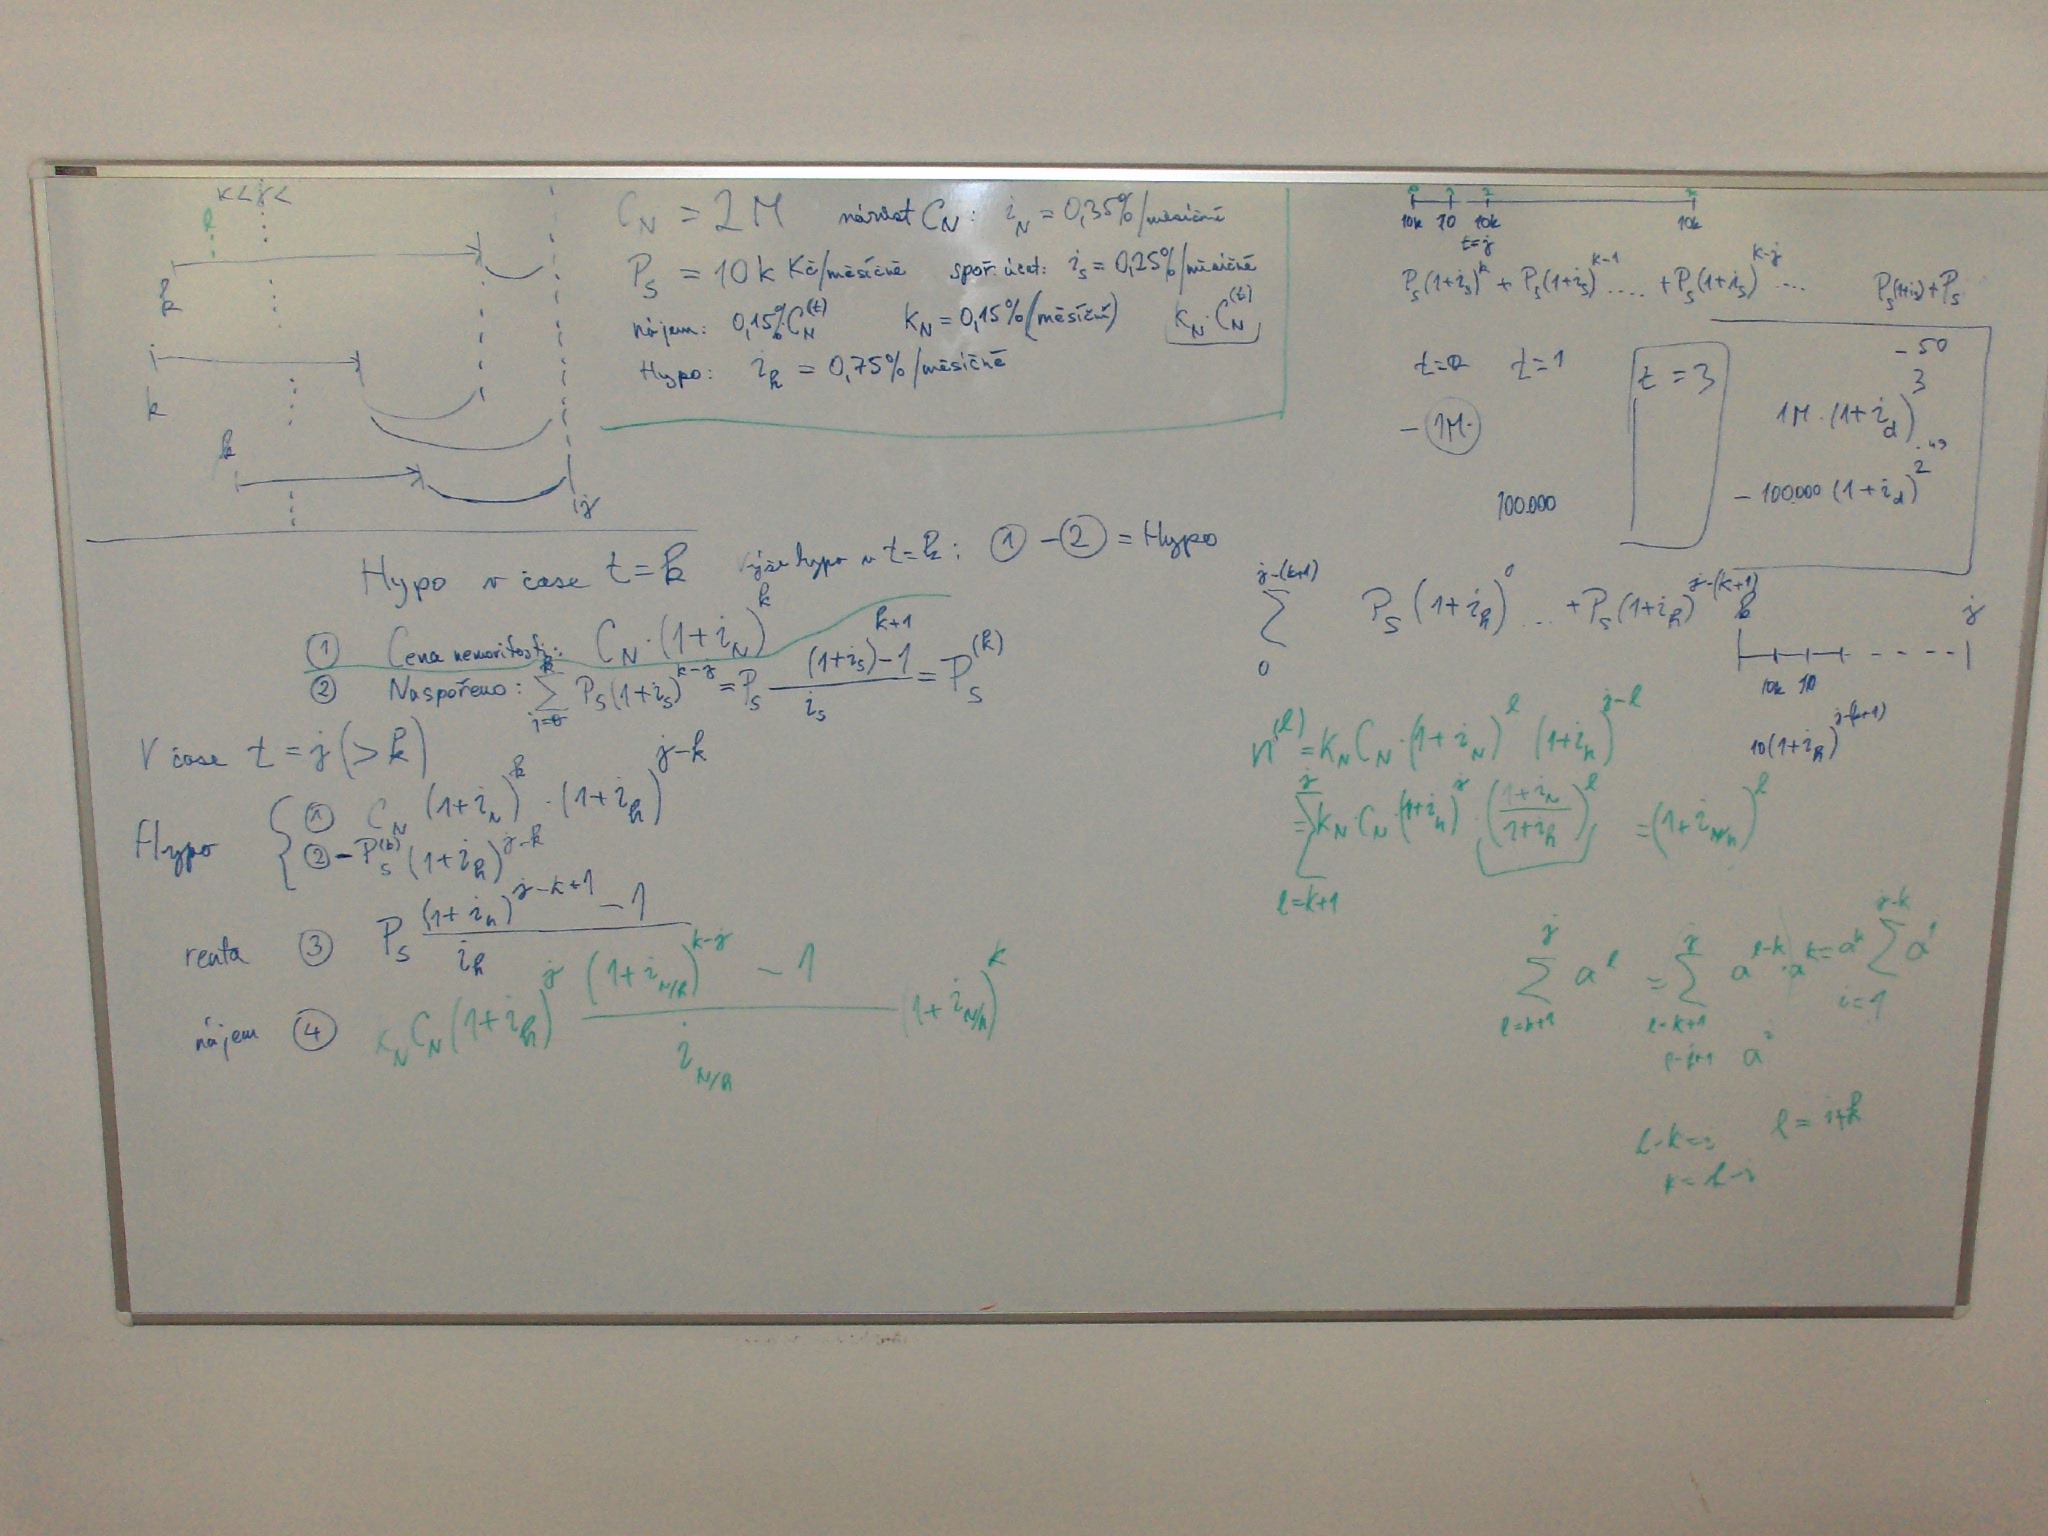 k < j <
l
k
k
k
j
C_N = 2M nárůst C_N: i_N = 0,35%/měsíčně
P_S = 10k Kč/měsíčně spoř. účet: i_S = 0,25%/měsíčně
nájem: 0,15% C_N^(t) K_N = 0,15% (měsíčně) K_N · C_N^(t)
Hypo: i_h = 0,75%/měsíčně
Hypo v čase t = k hypo v t = k: ① - ② = Hypo
① Cena nemovitosti: C_N · (1+i_N)^k
② Naspořeno: ∑_{j=0}^{k} P_S (1+i_S)^{k-j} = P_S ((1+i_S)^{k+1} - 1)/i_S = P_S^(k)
V čase t = j (> k)
Hypo { ① C_N (1+i_N)^k · (1+i_h)^{j-k}
② - P_S^(k) (1+i_h)^{j-k}
renta ③ P_S ((1+i_h)^{j-k+1} - 1)/i_h
nájem ④ K_N C_N (1+i_h)^j ((1+i_{N/h})^{k-j} - 1)/i_{N/h} (1+i_{N/h})^k
10k 10 10k 10k
t=j
P_S(1+i_S)^k + P_S(1+i_S)^{k-1} .... + P_S(1+i_S)^{k-j} .... P_S(1+i_S) + P_S
t=0 t=1 t = 3
- 50
-1M· 1M · (1+i_d)^3
.49
100.000 - 100.000 (1+i_d)^2
∑_{0}^{j-(k+1)} P_S (1+i_h)^0 ... + P_S (1+i_h)^{j-(k+1)}
k j
10k 10
10(1+i_h)^{j-(k+1)}
n^(l) = K_N C_N · (1+i_N)^l (1+i_h)^{j-l}
= ∑_{l=k+1}^{j} K_N · C_N · (1+i_h)^j · ((1+i_N)/(1+i_h))^l = (1+i_{N/h})^l
∑_{l=k+1}^{j} a^l = ∑_{l=k+1}^{j} a^{l-k} · a^k = a^k ∑_{i=1}^{j-k} a^i
a^i
l-k=i l = i+k
k = l-i